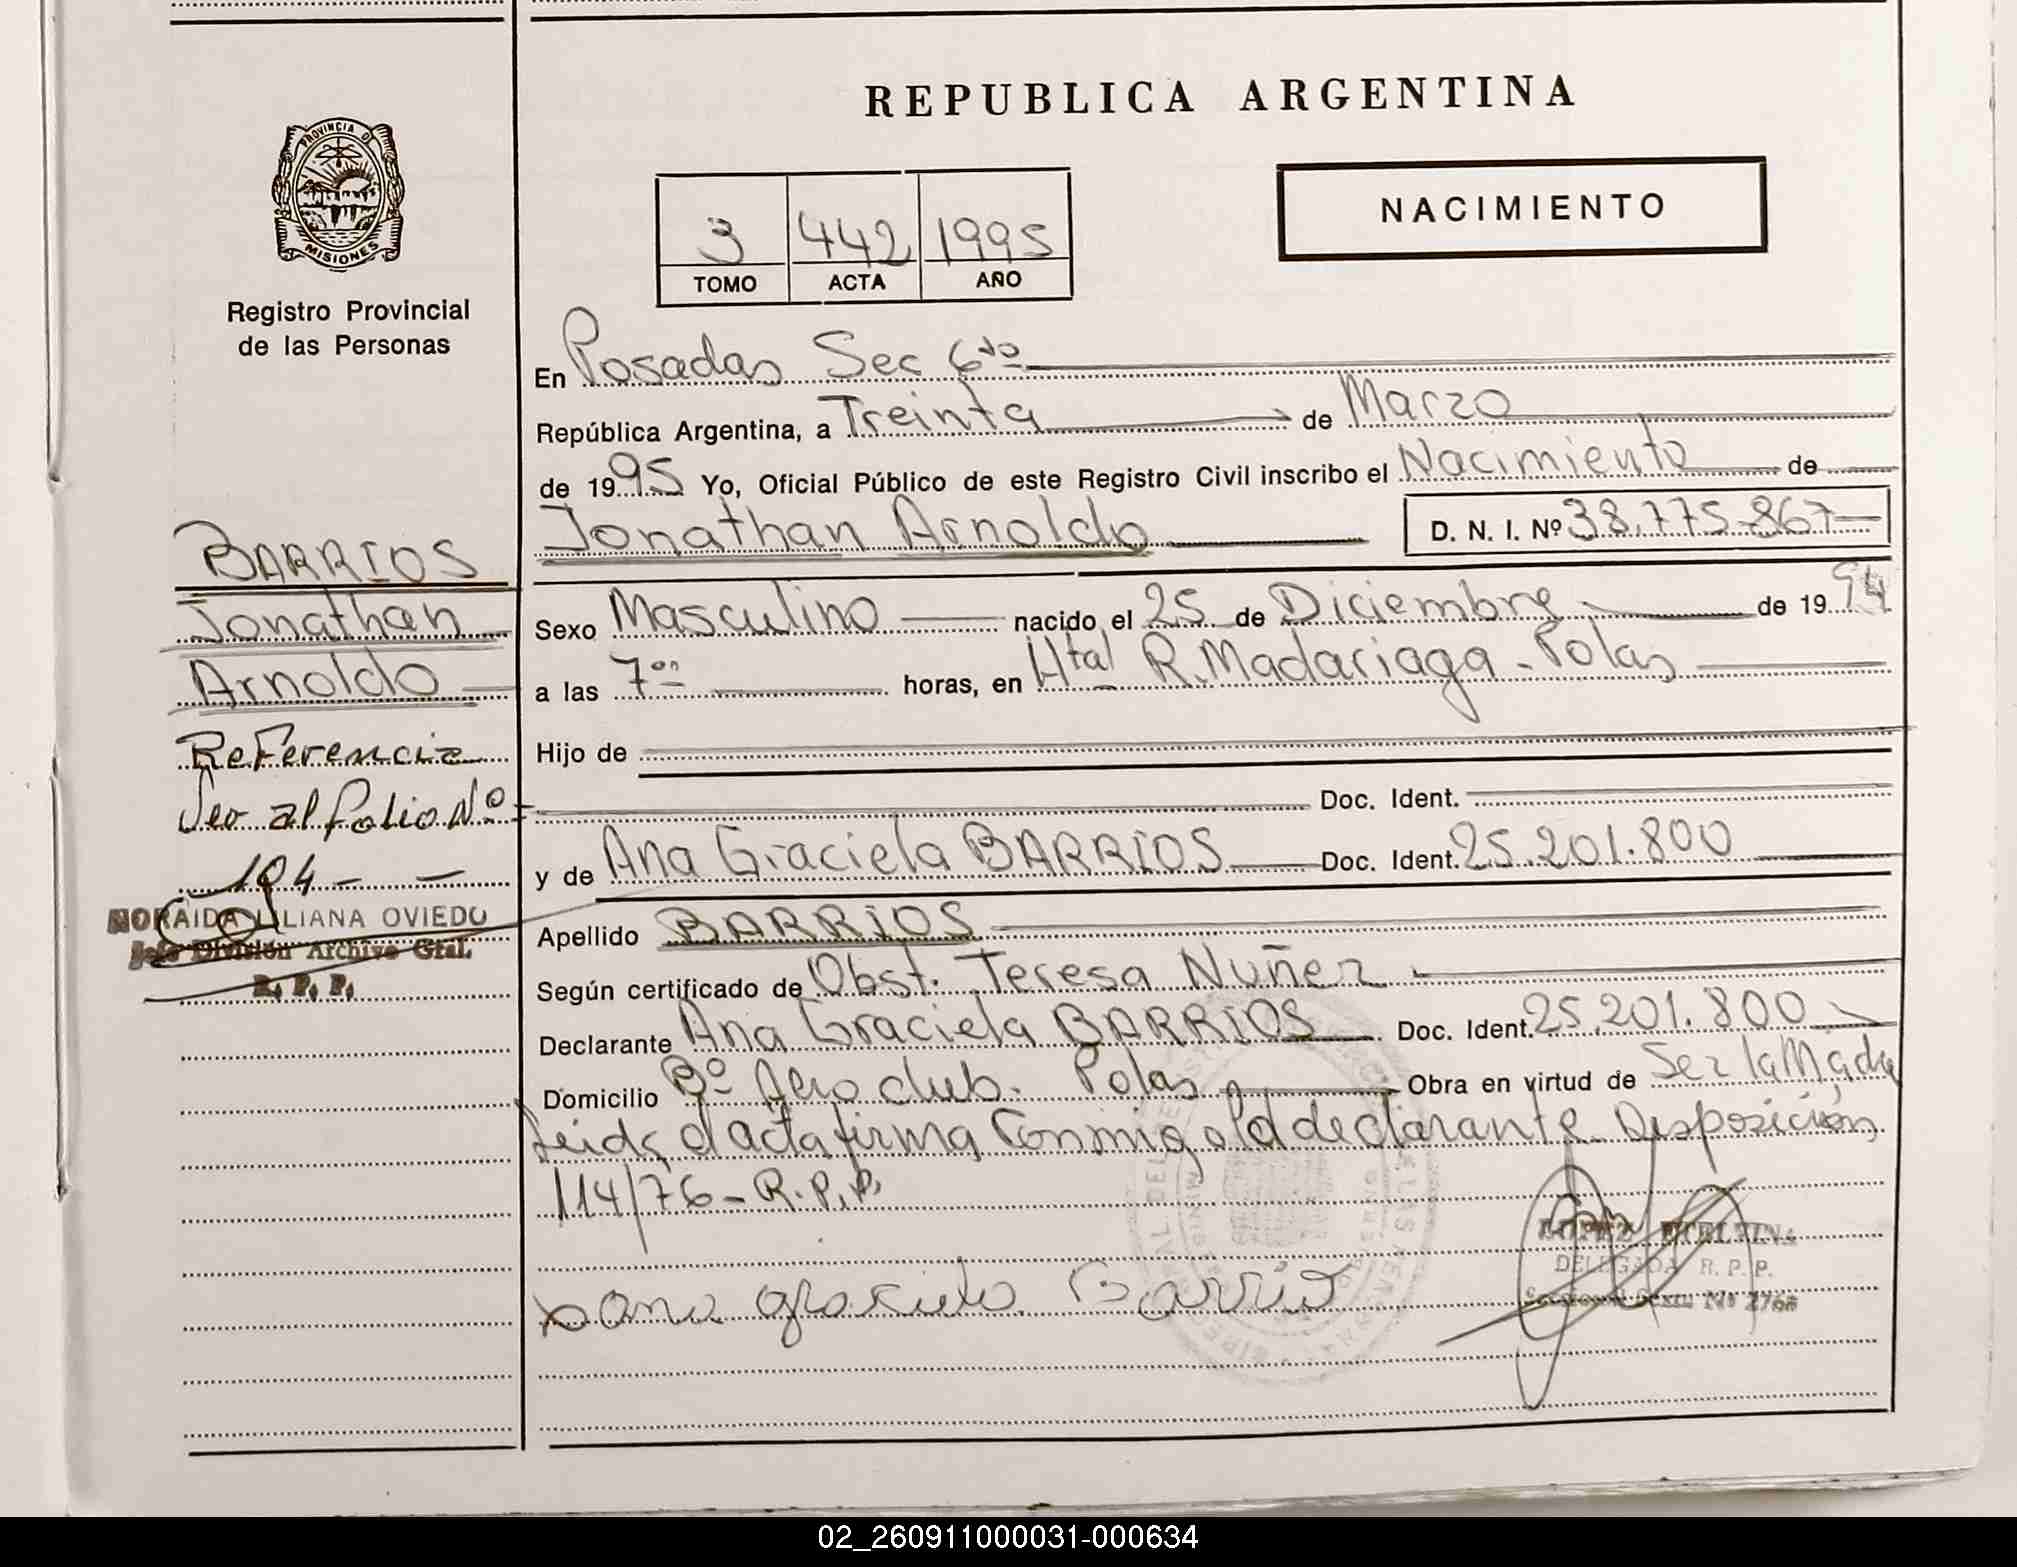 REPUBLICA ARGENTINA
PROVINCIA DE
MISIONES
Registro Provincial
de las Personas
3 442 1995
TOMO ACTA AÑO
NACIMIENTO
En Posadas Sec 6ta
República Argentina, a Treinta de Marzo
de 1995 Yo, Oficial Público de este Registro Civil inscribo el Nacimiento de
Jonathan Arnoldo D. N. I. Nº 38.775.867
Sexo Masculino nacido el 25 de Diciembre de 1994
a las 7ºº horas, en Htal R. Madariaga - Pdas
Hijo de
Doc. Ident.
y de Ana Graciela BARRIOS Doc. Ident. 25.201.800
Apellido BARRIOS
Según certificado de Obst. Teresa Nuñez
Declarante Ana Graciela BARRIOS Doc. Ident. 25.201.800
Domicilio Bº Aero club. Pdas Obra en virtud de Ser la Madre
Leida el acta firma Conmigo la declarante. Disposición
114/76 - R.P.P.
ana graciela Barrio
LOPEZ ETELVINA
DELEGADA R. P. P.
BARRIOS
Jonathan
Arnoldo
Referencia
Ver al folio Nº
194 -
NORAIDA LILIANA OVIEDO
Jefe División Archivo Gral.
R. P. P.
02_260911000031-000634